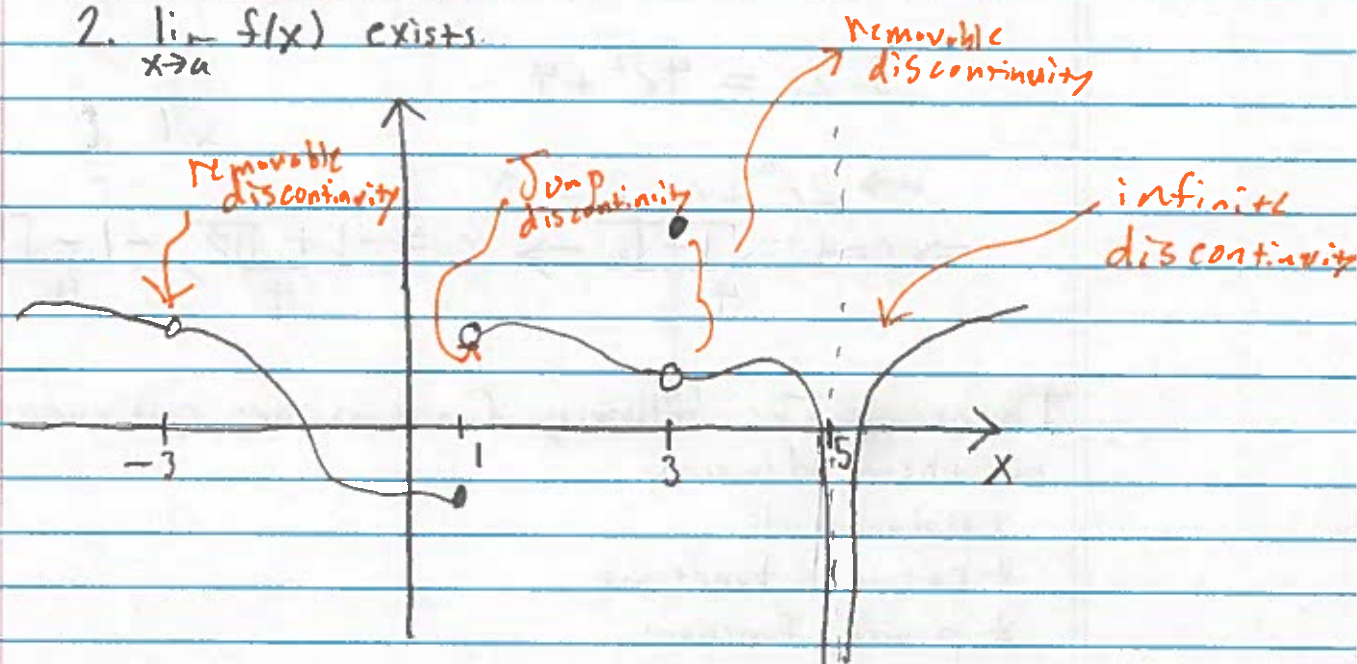 2. lim f(x) exists.
x→a
removable
discontinuity
removable
discontinuity
Jump
discontinuity
infinite
discontinuity
-3
1
3
5
x